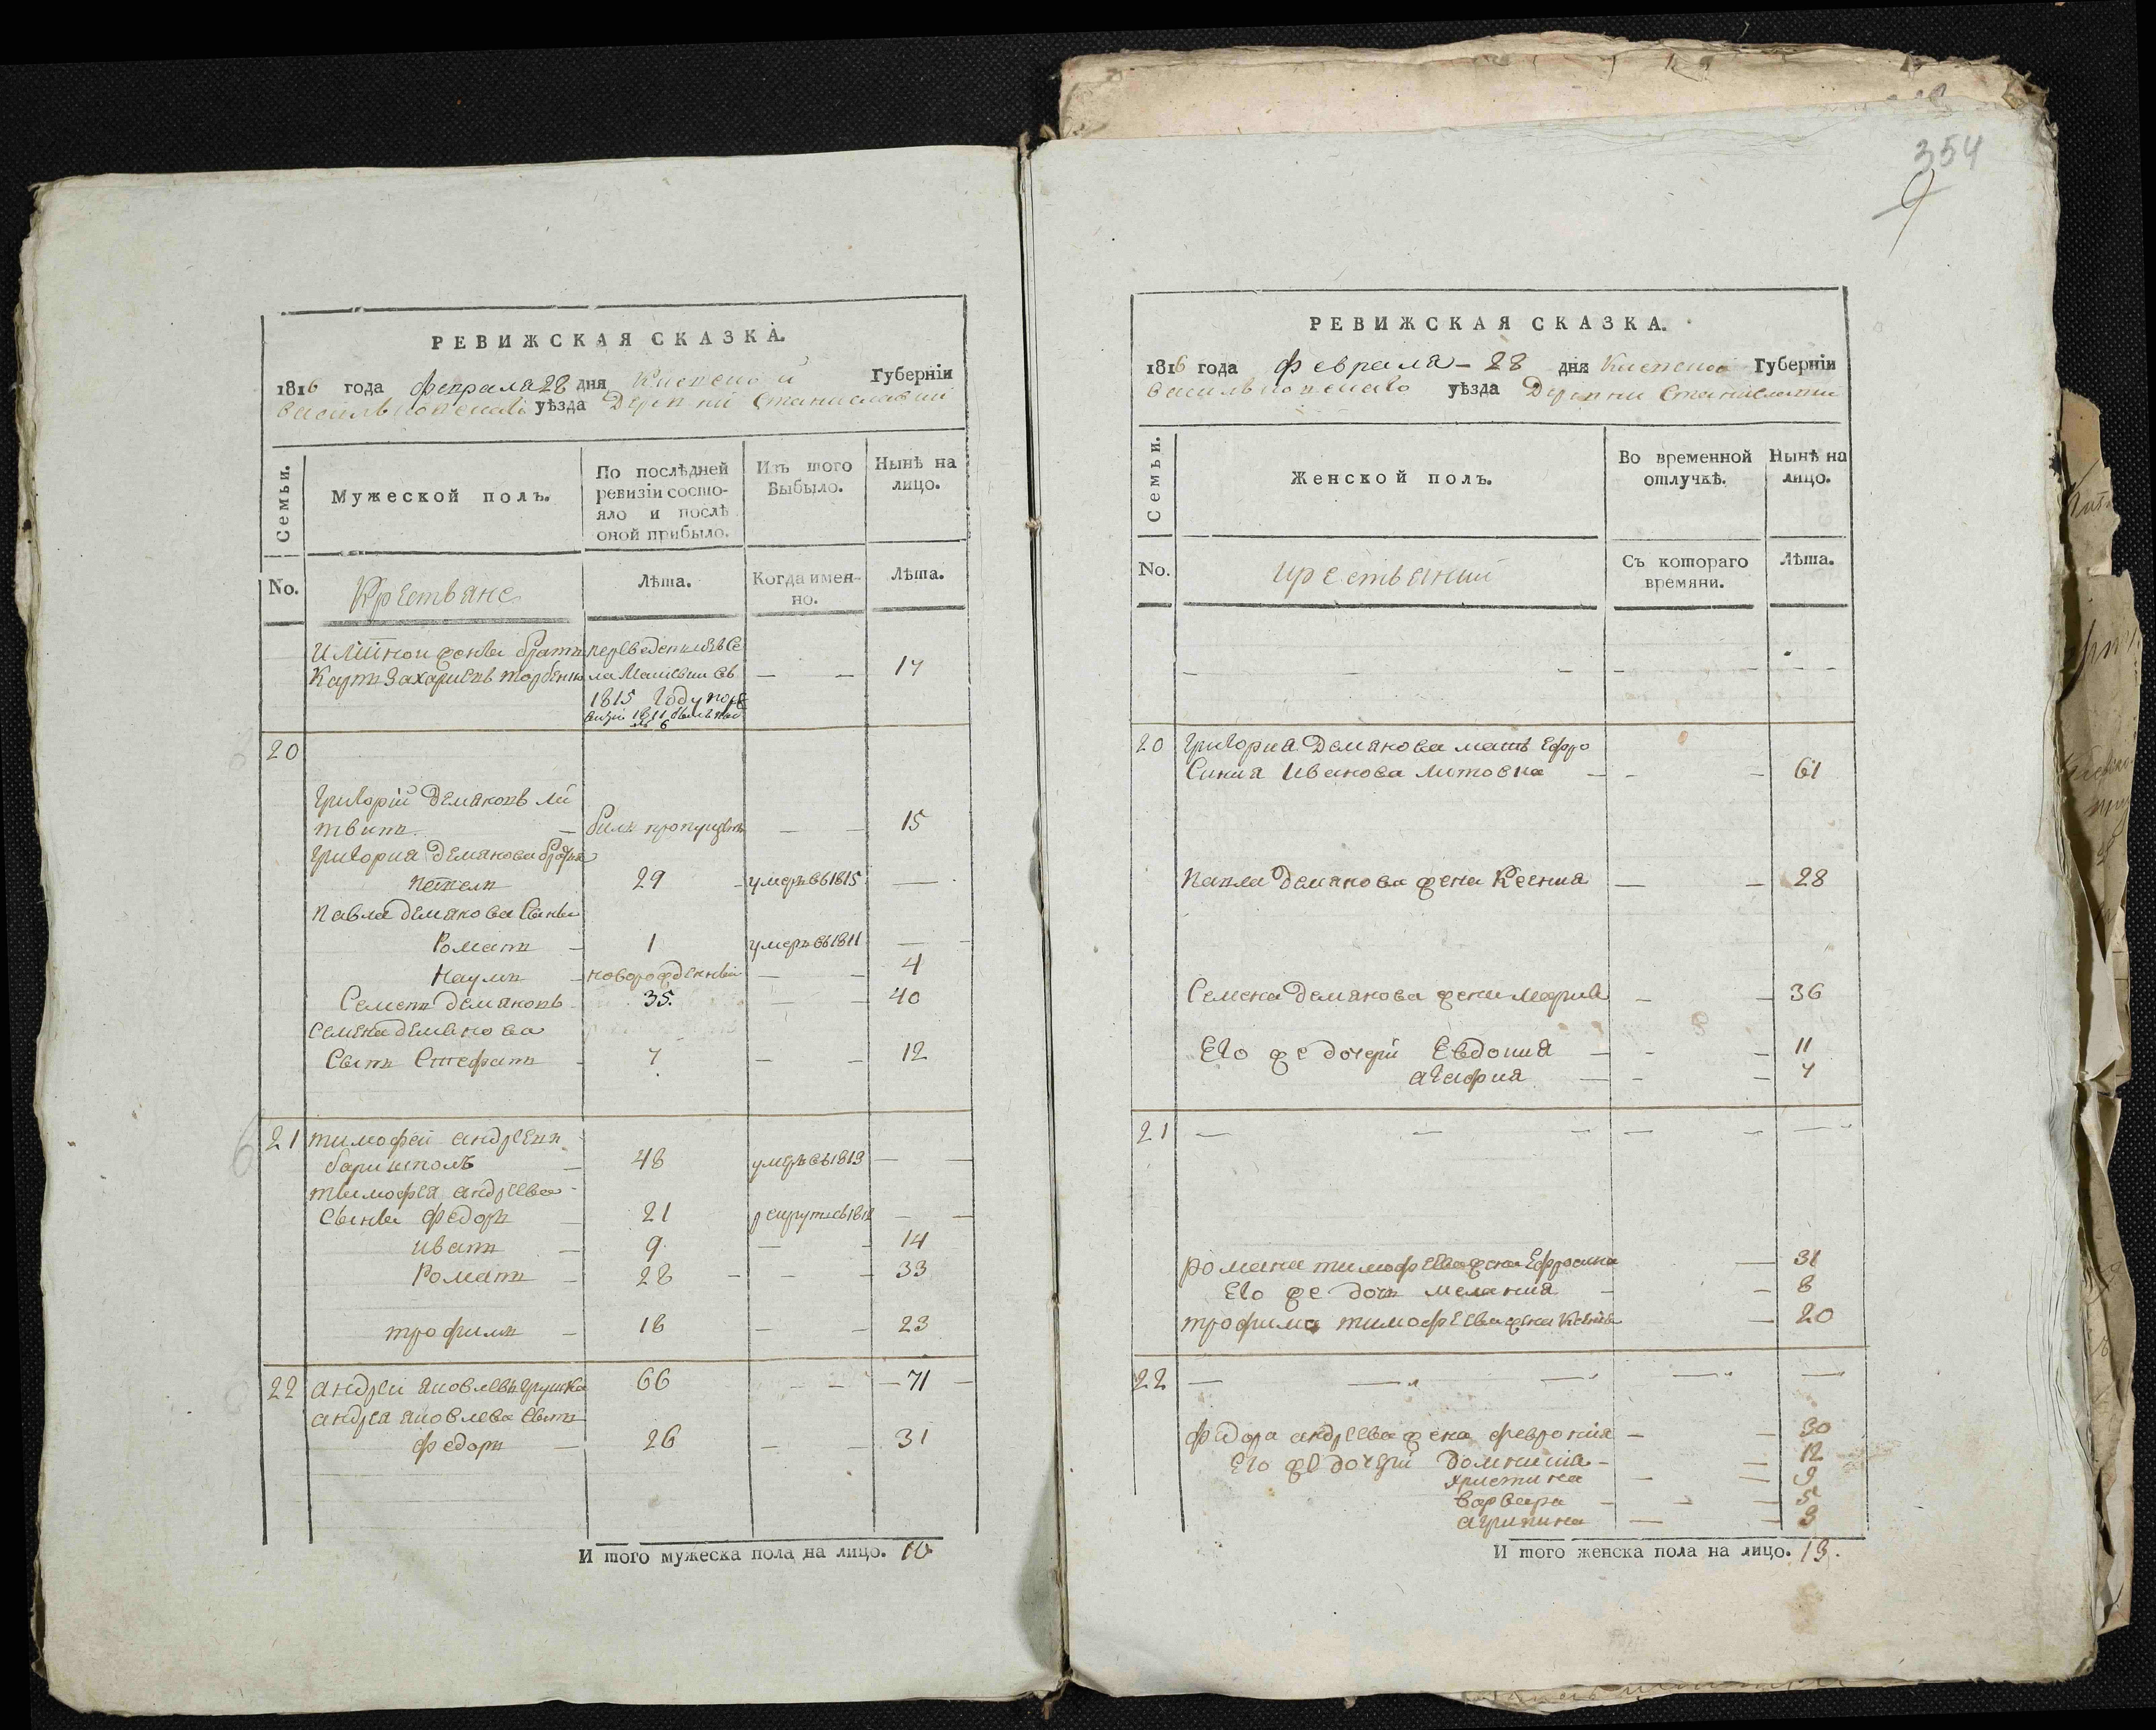 354
9
РЕВИЖСКАЯ СКАЗКА.
1816 года Февраля 28 дня Киевской Губерніи
Васильковскаго уѣзда Деревни Станиславки
Семьи.
Мужеской полъ.
По послѣдней ревизіи состо-
яло и послѣ
оной прибыло.
Изъ того
Выбыло.
Нынѣ на
лицо.
No.
Крестьяне
Лѣта.
Когда имен-
но.
Лѣта.
братъ
Карпъ Захариевъ
1815 году
1811
6
— — 17
20
Григорій Демяновъ Ли
твинъ — былъ пропущенъ — — 15
Григория Демянова братъ
Павелъ 29 умеръ въ 1815 —
Павла Демянова сыны
Романъ — 1 умеръ въ 1811 — —
Наумъ — новорожденный — — 4
Семенъ Демяновъ 35. — — 40
Семена Демянова
Сынъ Стефанъ — 7 — — 12
21 Тимофей андреевъ
баришполь — 48 умеръ въ 1813 — —
Тимофея андреева
Сыны Федоръ — 21 рекрутъ въ 1812 — —
иванъ — 9 — — 14
Романъ — 28 — — — 33
трофимъ — 18 — — 23
22 андрей яковлевъ грушка 66 — — — 71 —
андрея яковлева сынъ
Федоръ — 26 — — 31
И того мужеска пола на лицо. 10
РЕВИЖСКАЯ СКАЗКА.
1816 года Февраля – 28 дня Киевской Губерніи
Васильковскаго уѣзда Деревни Станиславки
Семьи.
Женской полъ.
Во временной
отлучкѣ.
Нынѣ на
лицо.
No.
крестьянки
Съ котораго
времяни.
Лѣта.
— — — — —
20 Григория Демянова мать Ефро
Синия Иванова Литовка — — — 61
Павла Демянова жена Ксения — — 28
Семена Демянова жена Мария — — 36
Его же дочери Евдокия — — — 11
агафия — — — 7
21 — — — — — —
Романа тимофеева жена Ефросина — 31
Его же дочь мелания — — 8
трофима тимофеева жена Ксения — 20
22 — — — — —
Федора андреева жена феврония — — 30
Его же дочери Домникия — — 12
христина — — 9
варвара — — — 5
агрипина — — 3
И того женска пола на лицо. 13.